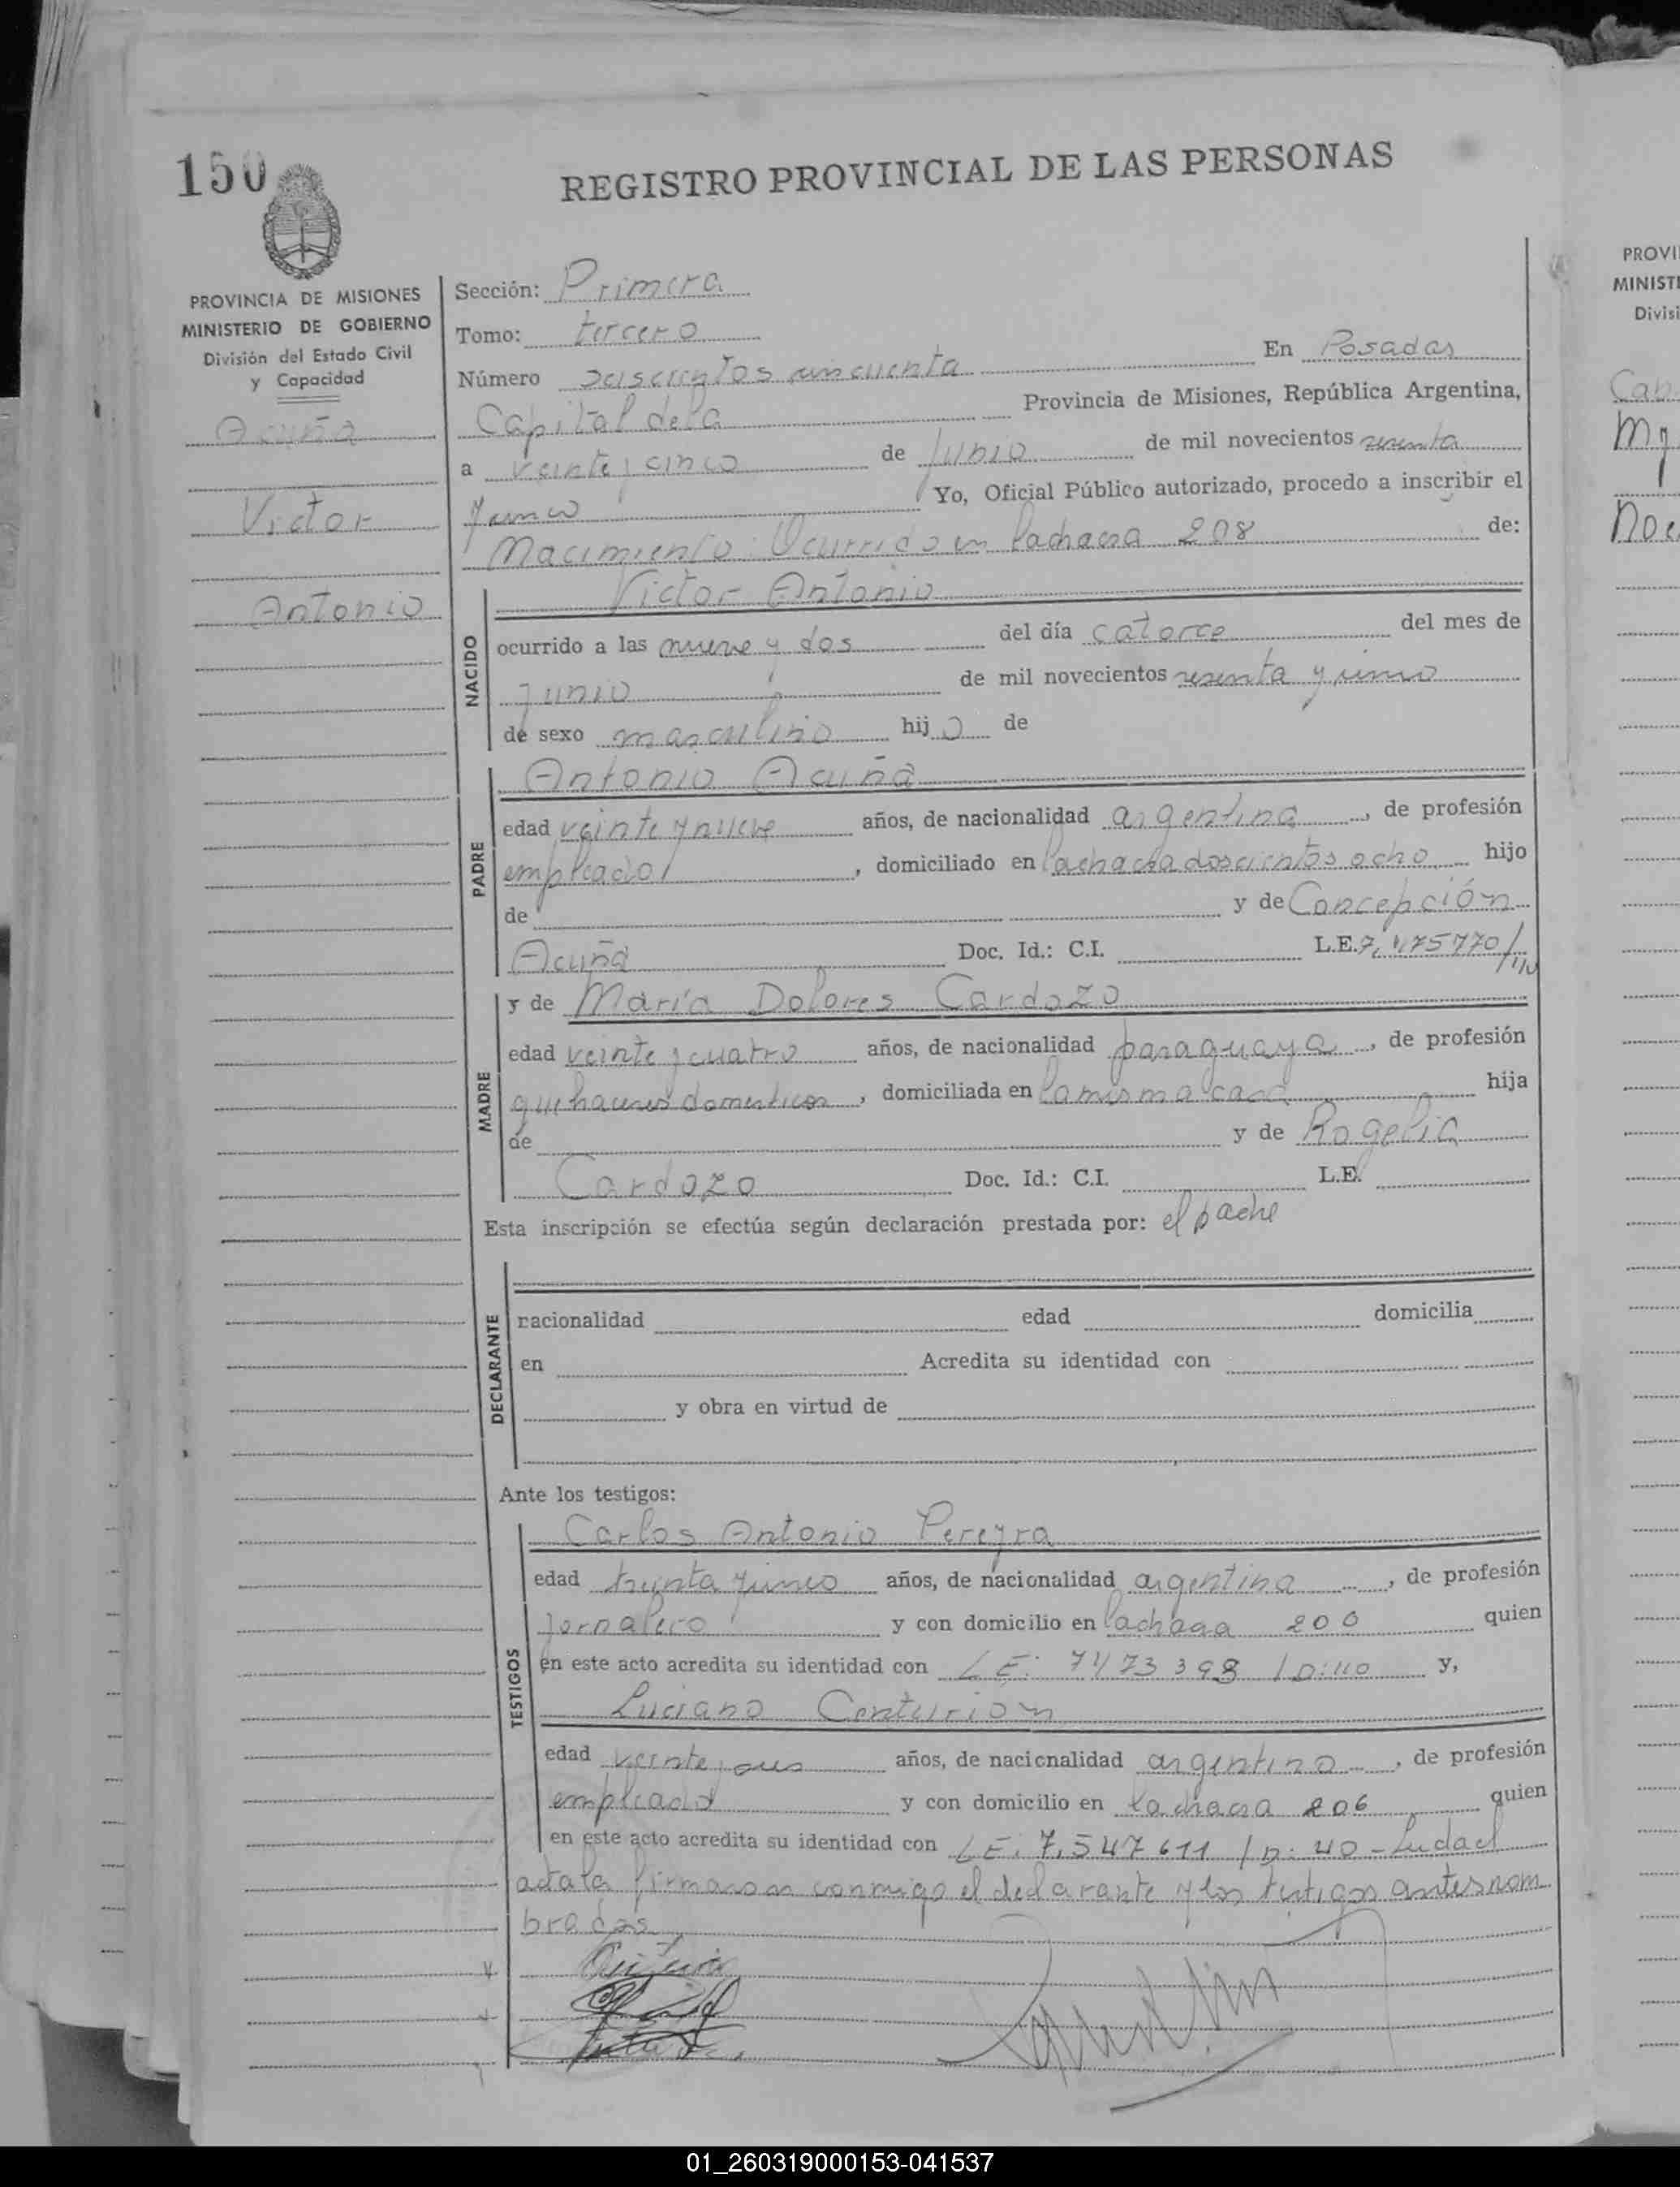 150
REGISTRO PROVINCIAL DE LAS PERSONAS
PROVINCIA DE MISIONES
MINISTERIO DE GOBIERNO
División del Estado Civil
y Capacidad
Acuña
Victor
Antonio
Sección: Primera
Tomo: tercero
Número seiscientos cincuenta En Posadas
Capital de la Provincia de Misiones, República Argentina,
a veinte y cinco de Junio de mil novecientos sesenta
y uno Yo, Oficial Público autorizado, procedo a inscribir el
Nacimiento: Ocurrido en la chacra 208 de:
NACIDO
Victor Antonio
ocurrido a las nueve y dos del día catorce del mes de
Junio de mil novecientos sesenta y uno
de sexo masculino hijo de
PADRE
Antonio Acuña
edad veinte y nueve años, de nacionalidad argentina, de profesión
empleado, domiciliado en la chacra doscientos ocho hijo
de y de Concepción
Acuña Doc. Id.: C.I. L.E.
MADRE
y de María Dolores Cardozo
edad veinte y cuatro años, de nacionalidad paraguaya, de profesión
quehaceres domesticos, domiciliada en la misma casa hija
de y de Rogelia
Cardozo Doc. Id.: C.I. L.E.
Esta inscripción se efectúa según declaración prestada por: el padre
DECLARANTE
racionalidad edad domicilia
en Acredita su identidad con
y obra en virtud de
Ante los testigos:
TESTIGOS
Carlos Antonio Pereyra
edad treinta y años, de nacionalidad argentina, de profesión
jornalero y con domicilio en la chacra 206 quien
en este acto acredita su identidad con L E: y,
Luciano Centurion
edad veinte y años, de nacicnalidad argentino, de profesión
empleado y con domicilio en la chacra 206 quien
en este acto acredita su identidad con L E: 7.547611 / D: 40 - Leida el
acta la firmaron conmigo el declarante y los testigos antes nom
brados
PROVI
MINIST
Divisi
01_260319000153-041537